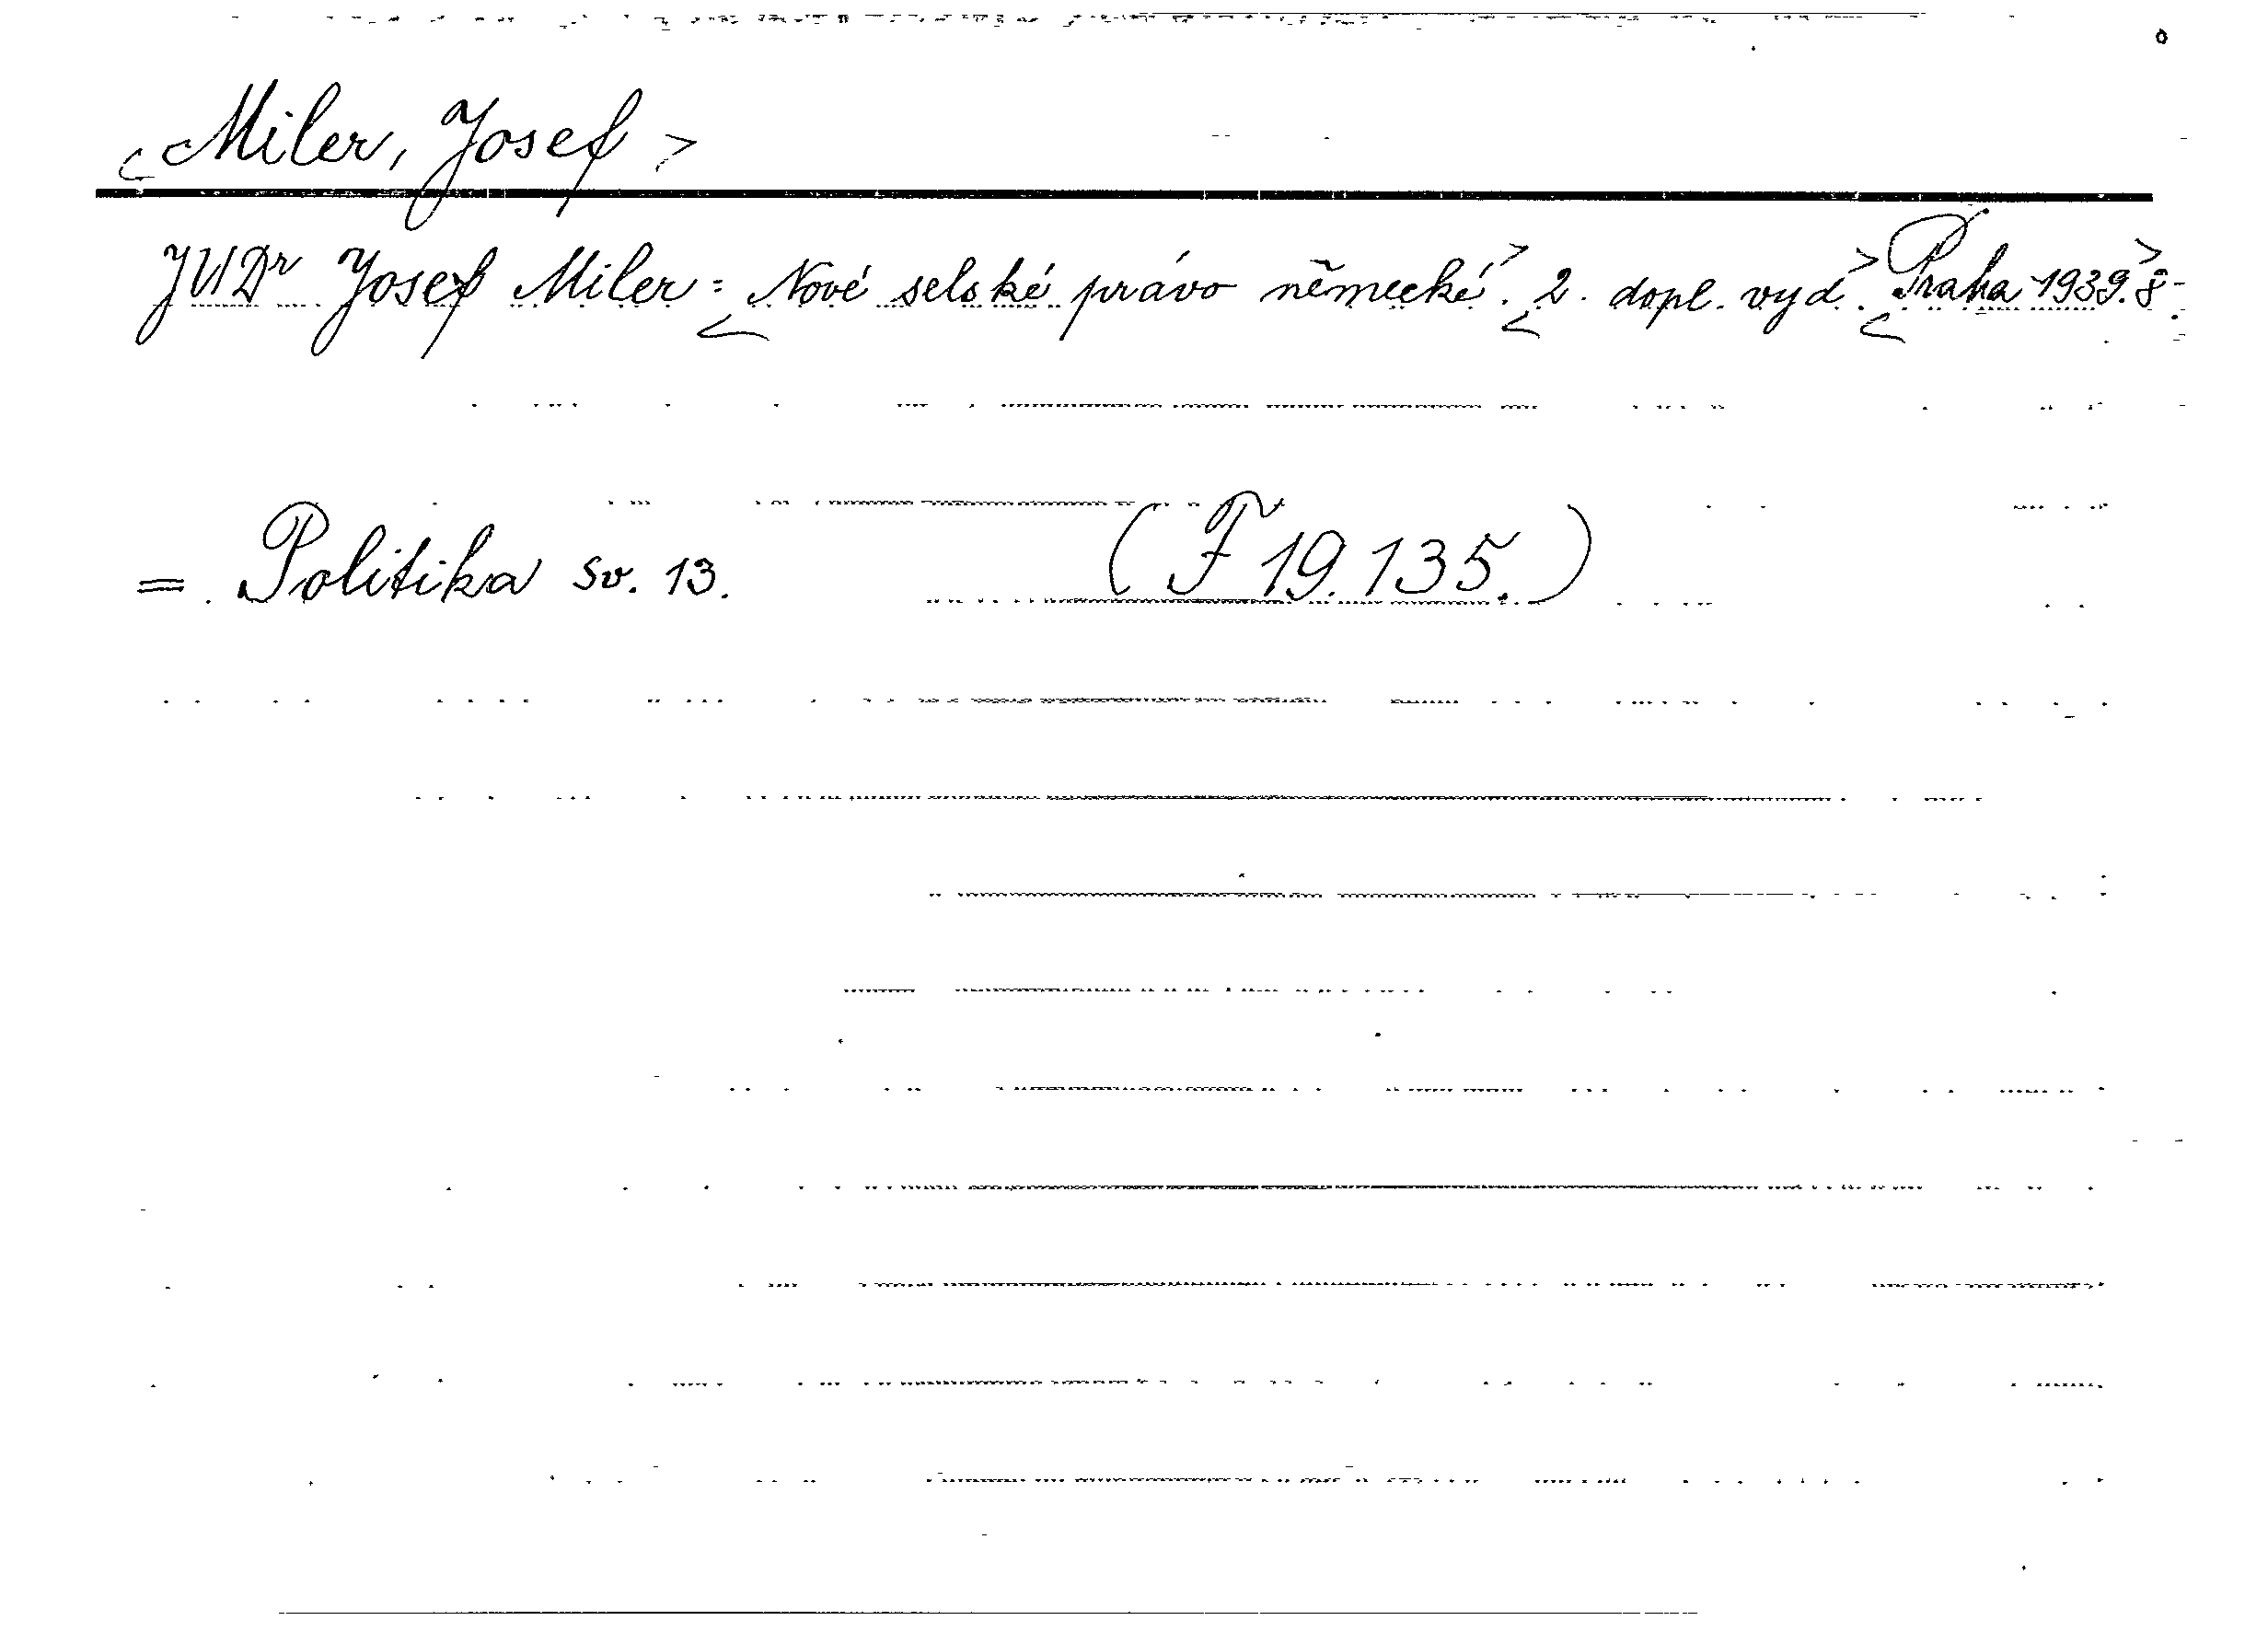 <Miler, Josef>
JUDr Josef Miler: <Nové selské právo německé.> <2. dopl. vyd.> <Praha 1939.> 8°.
= Politika sv. 13. (F 19.135.)